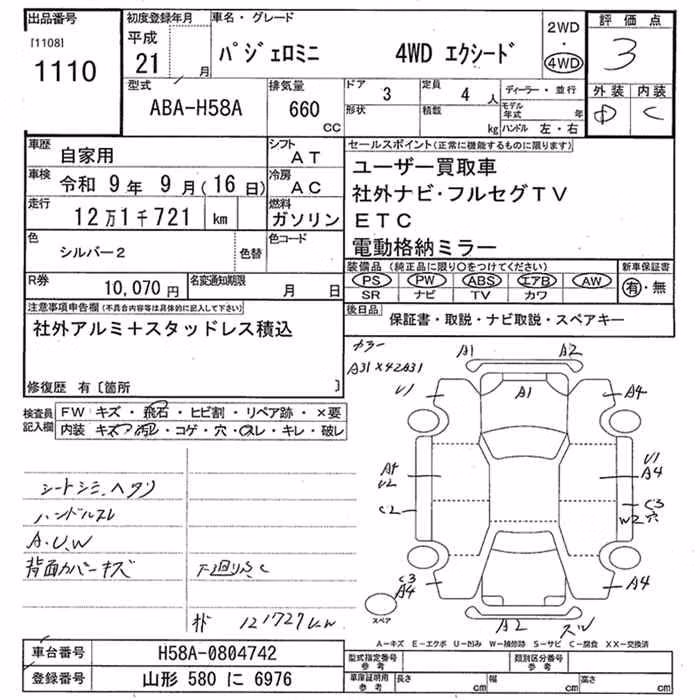 出品番号
[1108]
1110
初度登録年月
平成
21 月
車名・グレード
パジェロミニ 4WD エクシード
2WD
・
4WD
評価点
3
外装 内装
D C
型式
ABA-H58A
排気量
660
CC
ドア
3
形状
定員
4 人
積載
kg
ディーラー・並行
モデル年式 年
ハンドル 左・右
車歴
自家用
シフト
AT
車検
令和 9年 9月(16日)
冷房
AC
走行
12万1千721 km
燃料
ガソリン
色
シルバー2
色替
色コード
R券
10,070円
名変通知期限
月 日
セールスポイント(正常に機能するものに限ります)
ユーザー買取車
社外ナビ・フルセグTV
ETC
電動格納ミラー
装備品(純正品に限り○をつけてください)
PS PW ABS エアB AW
SR ナビ TV カワ
新車保証書
有・無
後日品
保証書・取説・ナビ取説・スペアキー
注意事項申告欄(不具合内容等は具体的に記入して下さい)
社外アルミ+スタッドレス積込
修復歴 有〔箇所 〕
検査員
記入欄
FW キズ・飛石・ヒビ割・リペア跡・×要
内装 キズ・汚レ・コゲ・穴・スレ・キレ・破レ
シートシミ、ヘタリ
ハンドルスレ
A.U.W
背面カバーキズ
下回りS.C
121727km
カラー
A31×42A31
A1
A2
U1
A1
A4
U2
C2
U1
A4
C3
W2 穴
C3
A4
A4
A2
スペア
A-キズ E-エクボ U-凹み W-補修跡 S-サビ C-腐食 XX-交換済
車台番号
H58A-0804742
登録番号
山形 580 に 6976
型式指定番号
参考
類別区分番号
参考
車庫証明用
参考
長さ cm
幅 cm
高さ cm